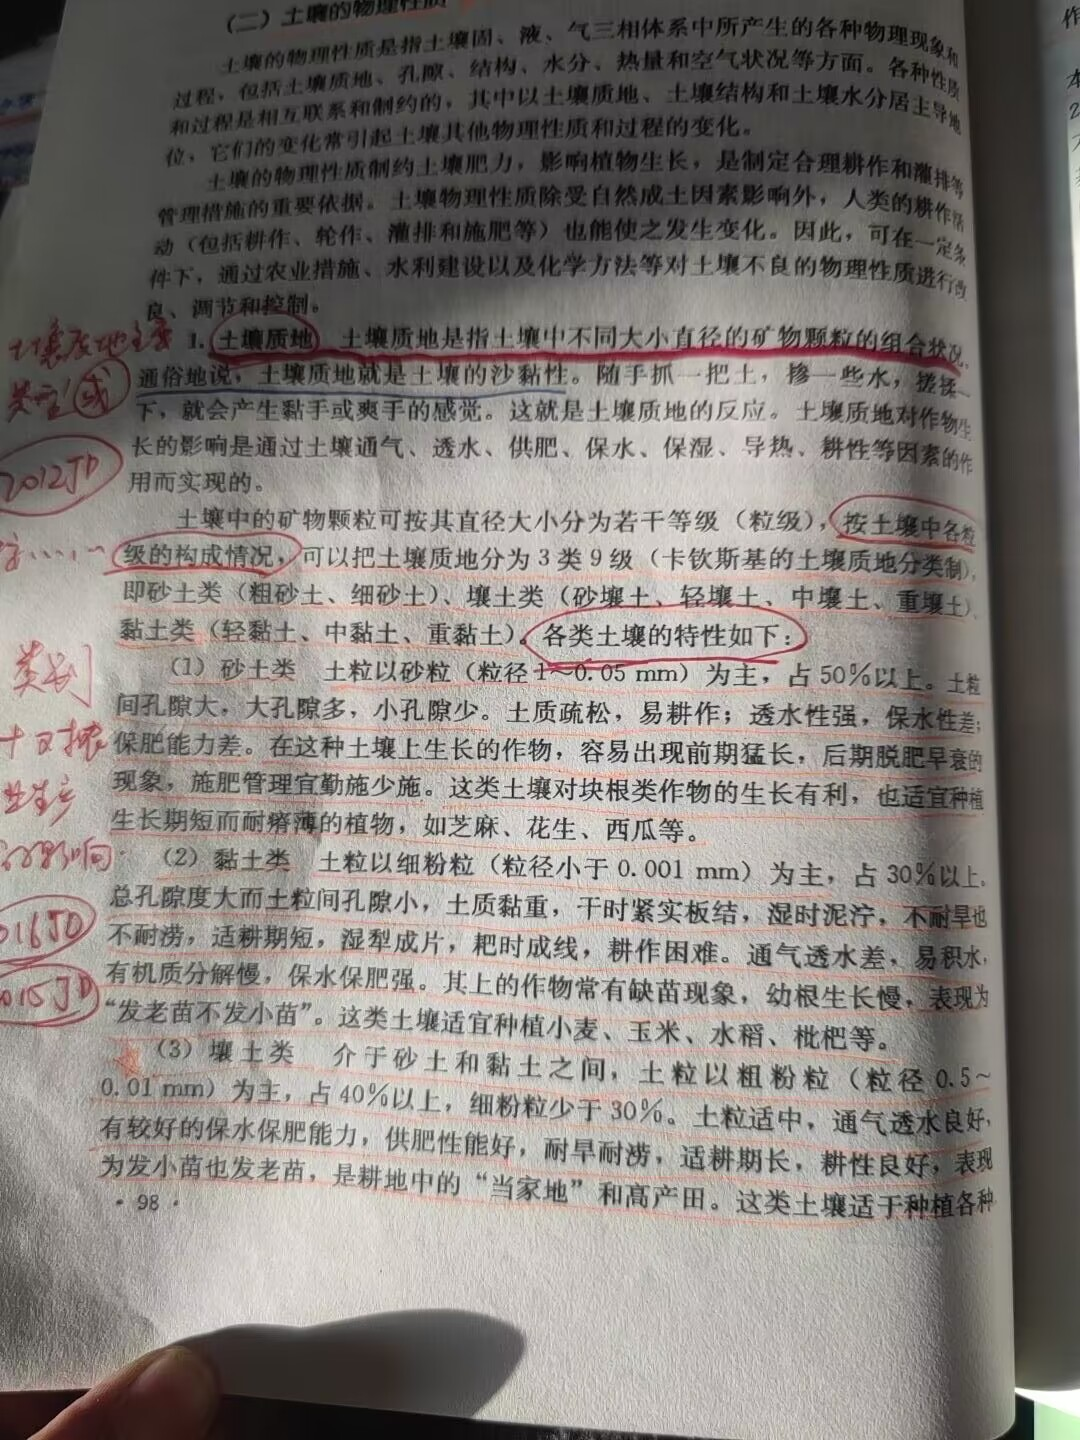 (二)土壤的物理性质
土壤的物理性质是指土壤固、液、气三相体系中所产生的各种物理现象和
过程,包括土壤质地、孔隙、结构、水分、热量和空气状况等方面。各种性质
和过程是相互联系和制约的,其中以土壤质地、土壤结构和土壤水分居主导地
位,它们的变化常引起土壤其他物理性质和过程的变化。
土壤的物理性质制约土壤肥力,影响植物生长,是制定合理耕作和灌排等
管理措施的重要依据。土壤物理性质除受自然成土因素影响外,人类的耕作活
动(包括耕作、轮作、灌排和施肥等)也能使之发生变化。因此,可在一定条
件下,通过农业措施、水利建设以及化学方法等对土壤不良的物理性质进行改
良、调节和控制。
土壤质地主要
类型(或
1. 土壤质地 土壤质地是指土壤中不同大小直径的矿物颗粒的组合状况,
通俗地说,土壤质地就是土壤的沙黏性。随手抓一把土,掺一些水,搓揉一
下,就会产生黏手或爽手的感觉。这就是土壤质地的反应。土壤质地对作物生
长的影响是通过土壤通气、透水、供肥、保水、保湿、导热、耕性等因素的作
用而实现的。
2012JD
土壤中的矿物颗粒可按其直径大小分为若干等级(粒级),按土壤中各粒
级的构成情况,可以把土壤质地分为3类9级(卡钦斯基的土壤质地分类制),
即砂土类(粗砂土、细砂土)、壤土类(砂壤土、轻壤土、中壤土、重壤土)、
黏土类(轻黏土、中黏土、重黏土)。各类土壤的特性如下:
类别
(1)砂土类 土粒以砂粒(粒径1~0.05 mm)为主,占50%以上。土粒
间孔隙大,大孔隙多,小孔隙少。土质疏松,易耕作;透水性强,保水性差;
保肥能力差。在这种土壤上生长的作物,容易出现前期猛长,后期脱肥早衰的
现象,施肥管理宜勤施少施。这类土壤对块根类作物的生长有利,也适宜种植
生长期短而耐瘠薄的植物,如芝麻、花生、西瓜等。
业生产
的影响
(2)黏土类 土粒以细粉粒(粒径小于0.001 mm)为主,占30%以上。
总孔隙度大而土粒间孔隙小,土质黏重,干时紧实板结,湿时泥泞,不耐旱也
不耐涝,适耕期短,湿犁成片,耙时成线,耕作困难。通气透水差,易积水,
有机质分解慢,保水保肥强。其上的作物常有缺苗现象,幼根生长慢,表现为
“发老苗不发小苗”。这类土壤适宜种植小麦、玉米、水稻、枇杷等。
016JD
015JD
(3)壤土类 介于砂土和黏土之间,土粒以粗粉粒(粒径0.5~
0.01 mm)为主,占40%以上,细粉粒少于30%。土粒适中,通气透水良好,
有较好的保水保肥能力,供肥性能好,耐旱耐涝,适耕期长,耕性良好,表现
为发小苗也发老苗,是耕地中的“当家地”和高产田。这类土壤适于种植各种
· 98 ·